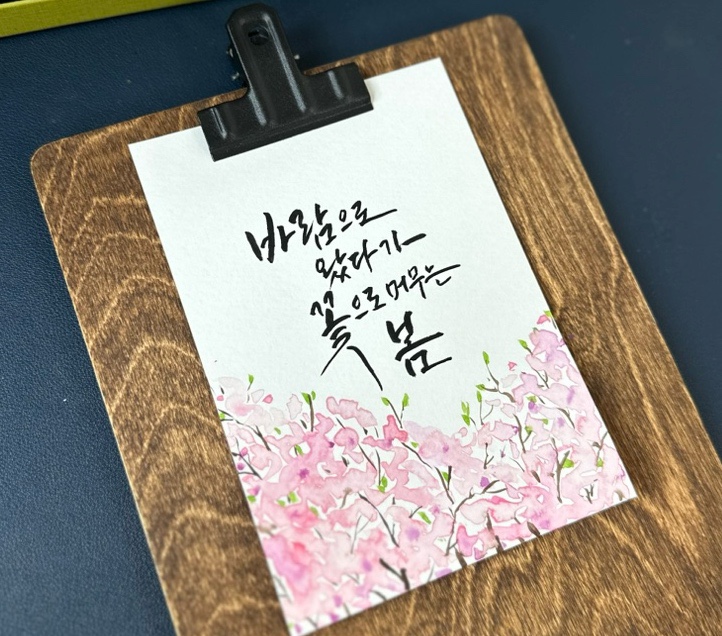 바람으로
왔다가
꽃으로 머무는
봄